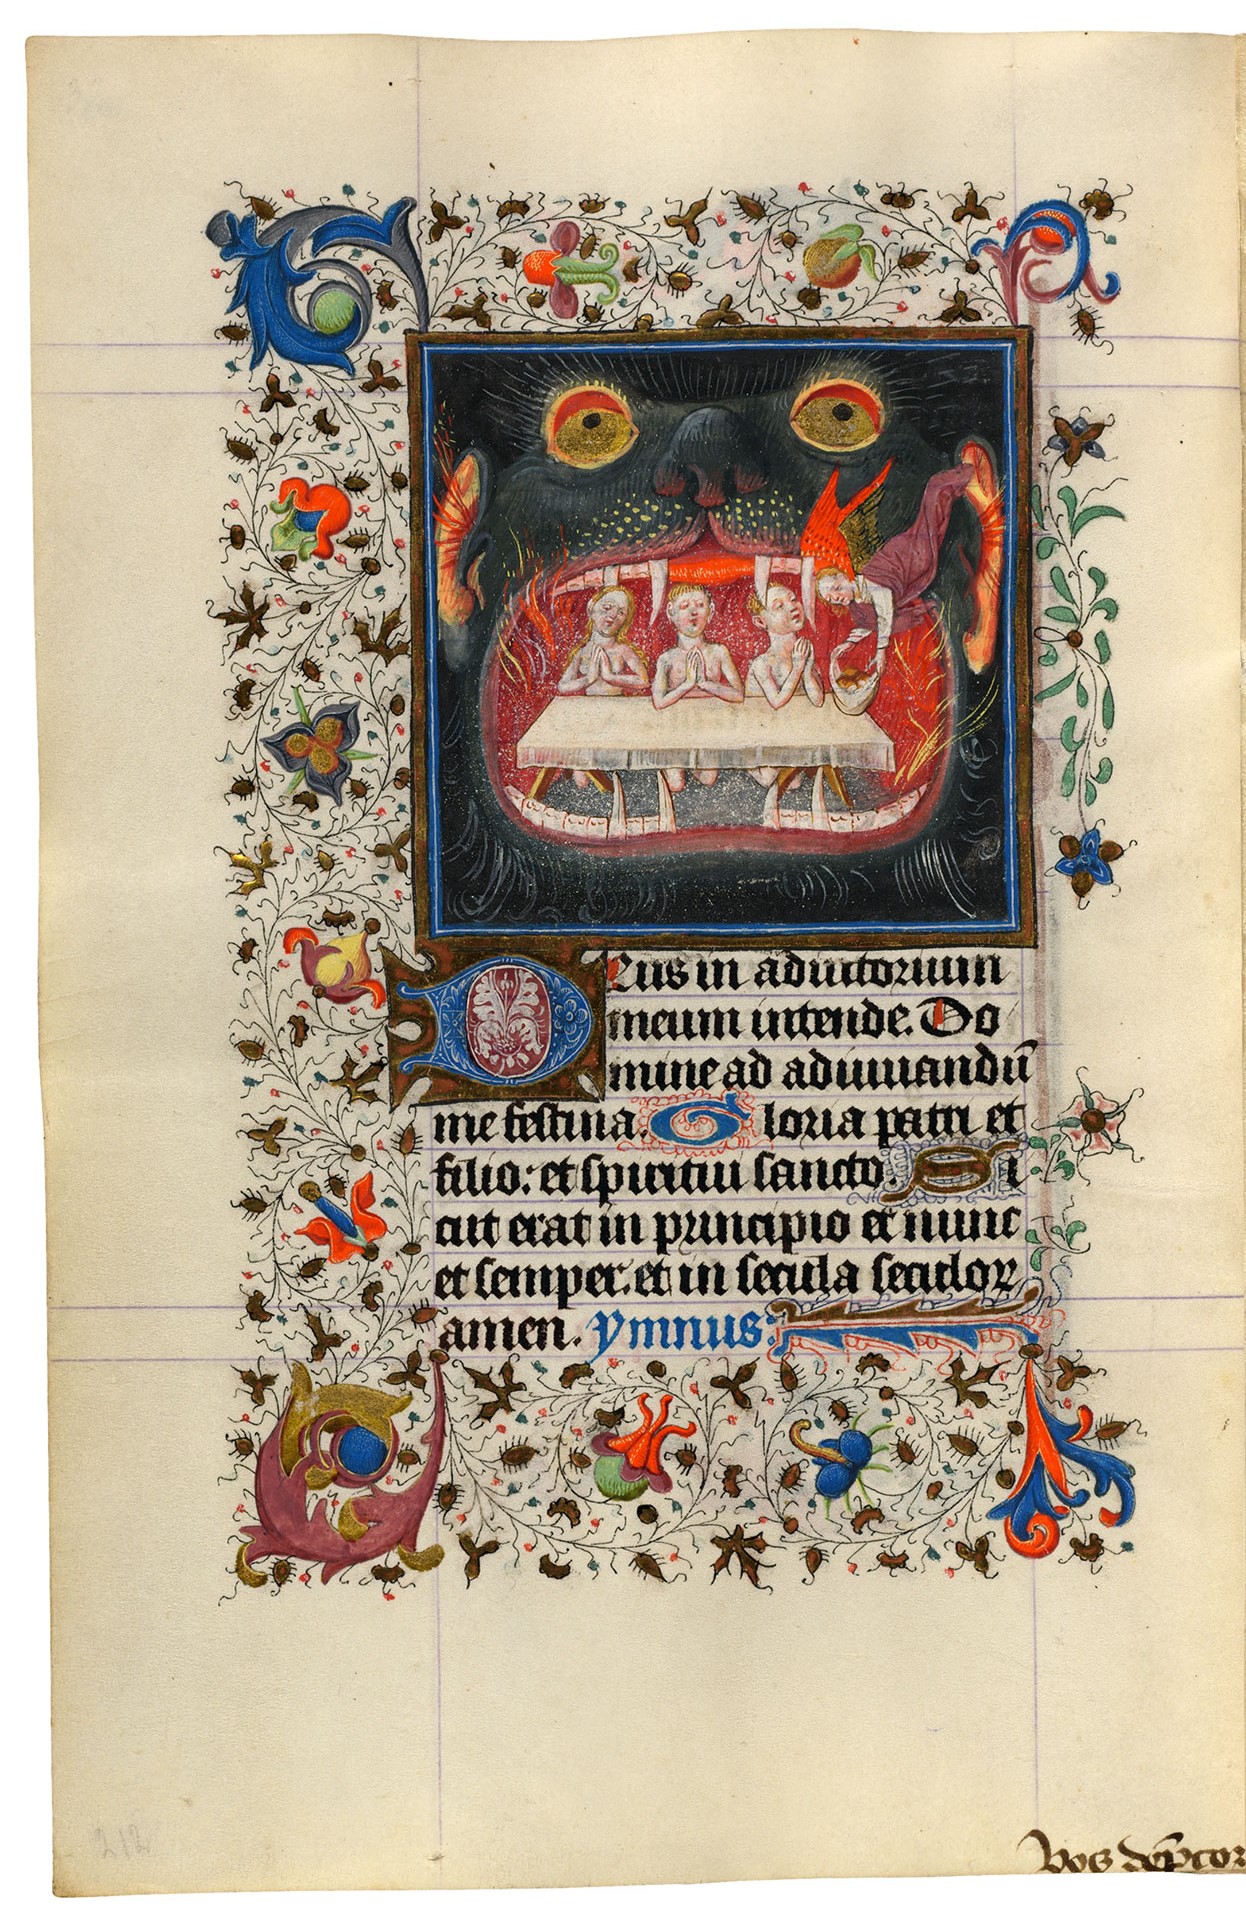 Deus in adiutorium
meum intende. Do
mine ad adiuuandū
me festina. Gloria patri et
filio: et spiritui sancto. Si
cut erat in principio et nunc
et semper: et in secula seculoꝝ
amen. ymnus:
212